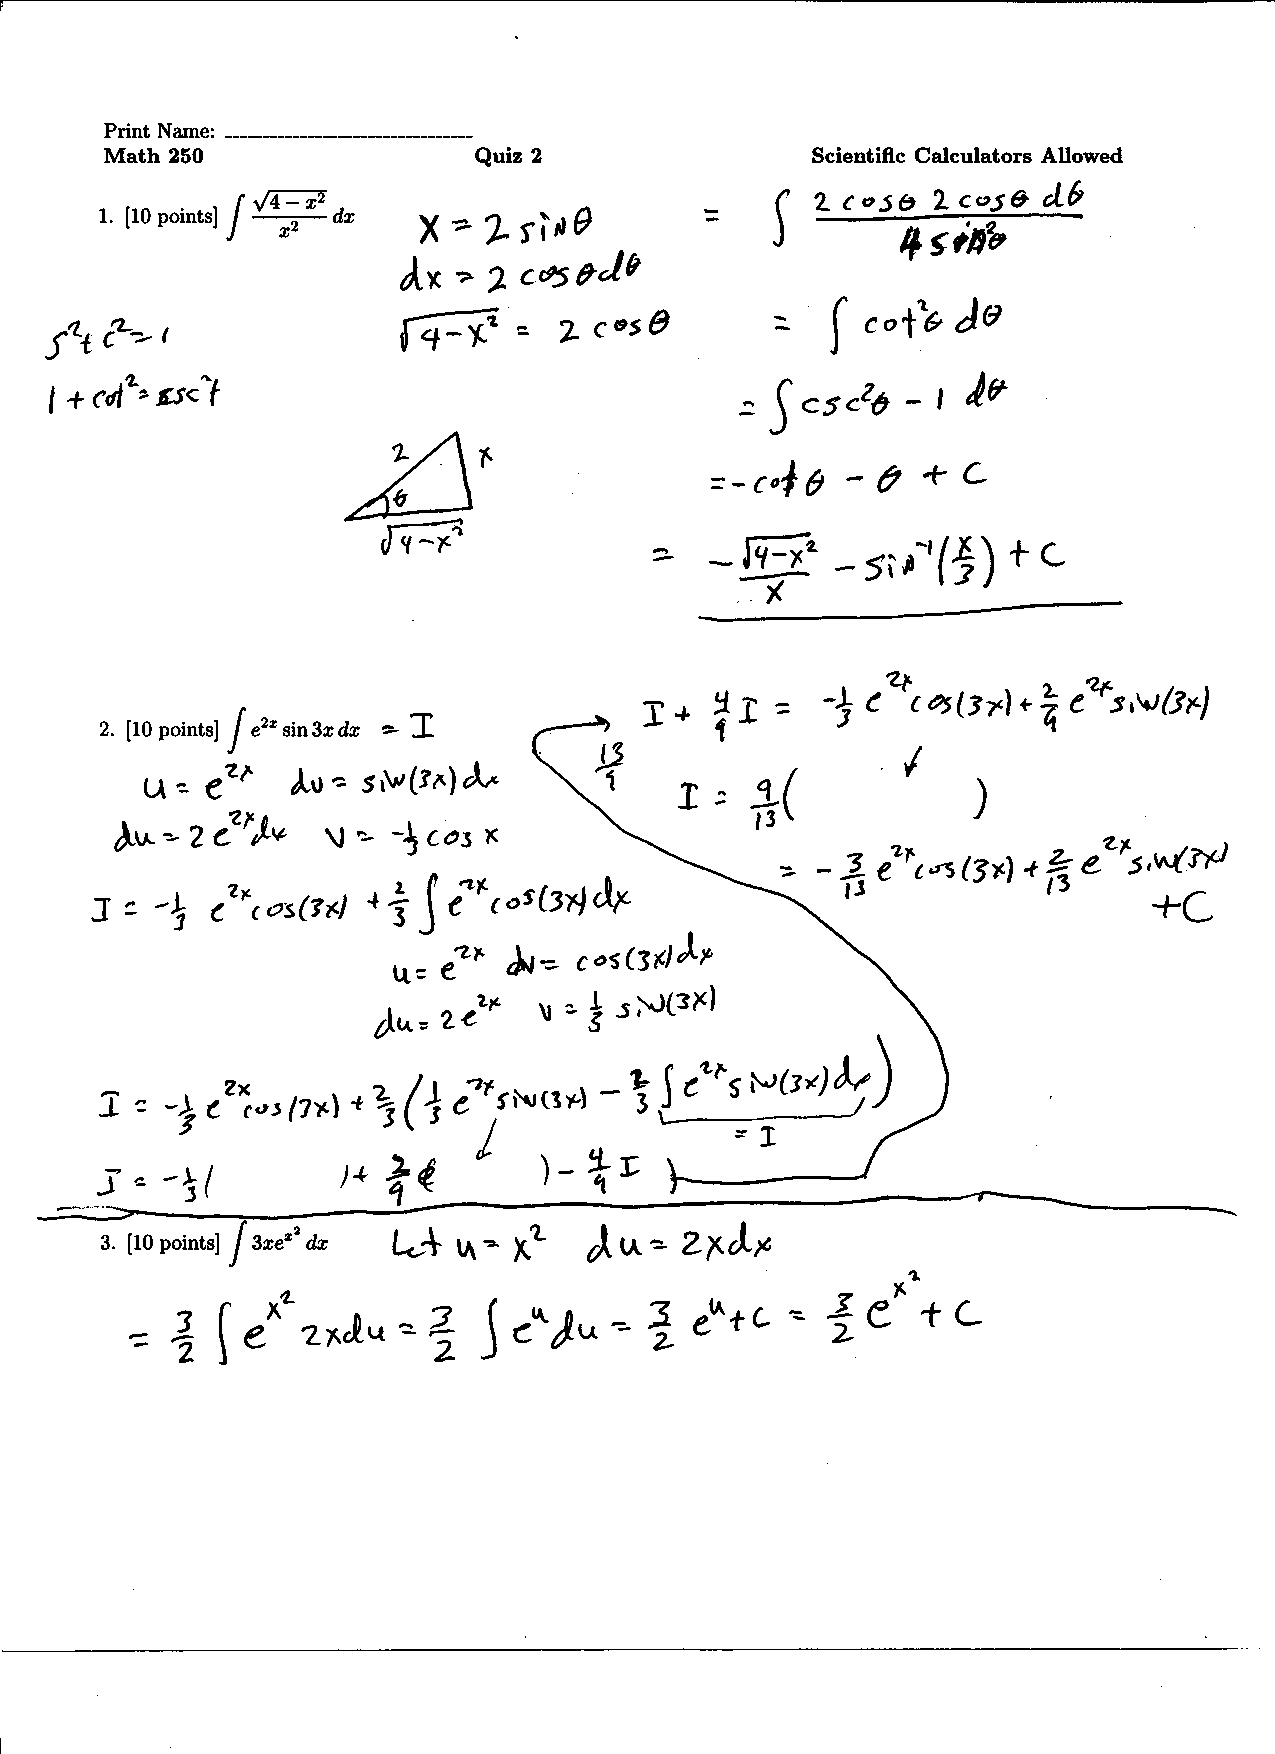 Print Name: ______________________
Math 250 Quiz 2 Scientific Calculators Allowed
1. [10 points] ∫ √(4 − x²)/x² dx
x = 2 sinθ
dx = 2 cosθdθ
√(4−x²) = 2 cosθ
s²+c²=1
1+cot²=csc²
2
x
θ
√(4−x²)
= ∫ (2 cosθ 2 cosθ dθ)/(4 sin²θ)
= ∫ cot²θ dθ
= ∫ csc²θ − 1 dθ
= −cotθ − θ + C
= −√(4−x²)/x − sin⁻¹(x/3) + C
2. [10 points] ∫ e^{2x} sin 3x dx = I
u = e^{2x} dv = sin(3x)dx
du = 2e^{2x}dx v = −1/3 cos x
I = −1/3 e^{2x}cos(3x) + 2/3 ∫ e^{2x}cos(3x)dx
u = e^{2x} dv = cos(3x)dx
du = 2e^{2x} v = 1/3 sin(3x)
I = −1/3 e^{2x}cos(3x) + 2/3 (1/3 e^{2x}sin(3x) − 2/3 ∫e^{2x}sin(3x)dx)
= I
I = −1/3( ) + 2/9( ) − 4/9 I )
I + 4/9 I = −1/3 e^{2x}cos(3x) + 2/9 e^{2x}sin(3x)
13/9
I = 9/13( )
= −3/13 e^{2x}cos(3x) + 2/13 e^{2x}sin(3x)
+C
3. [10 points] ∫ 3xe^{x²} dx Let u = x² du = 2xdx
= 3/2 ∫ e^{x²} 2xdu = 3/2 ∫ e^u du = 3/2 e^u + C = 3/2 e^{x²} + C